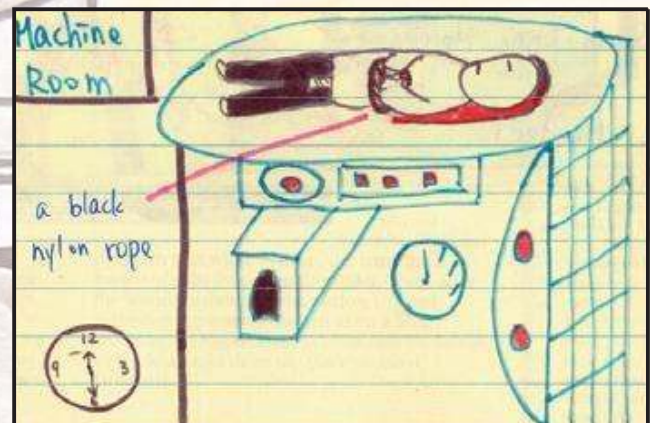 Machine
Room
a black
nylon rope
12
9
3
6